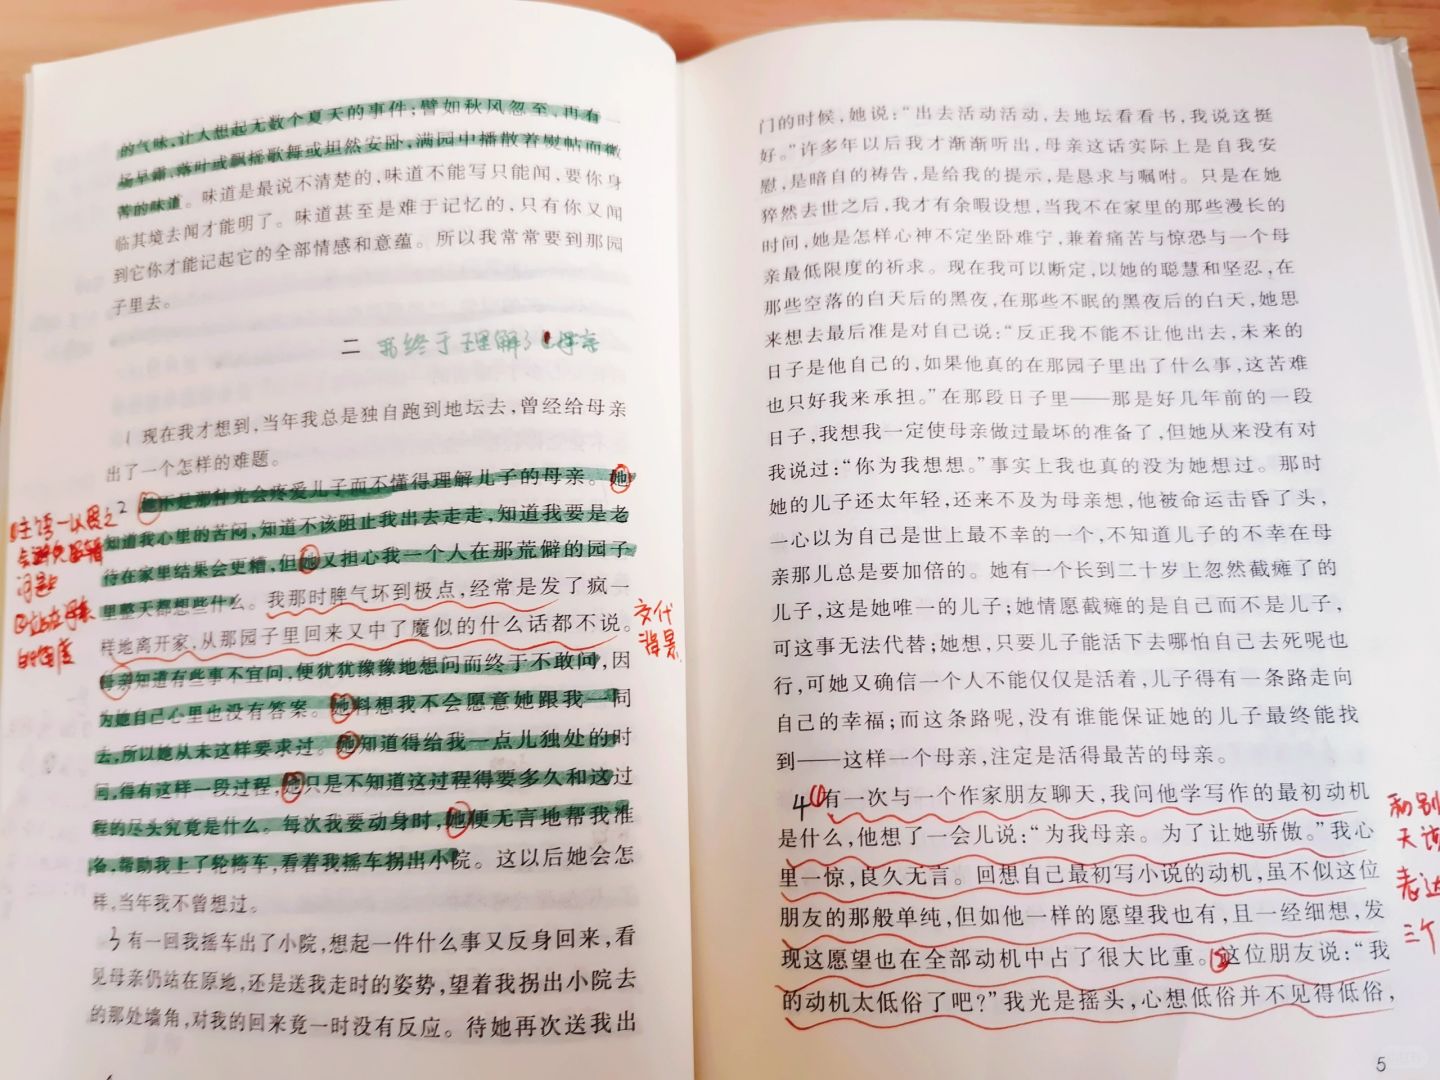 的气味,让人想起无数个夏天的事件;譬如秋风忽至,再有一
场早霜,落叶或飘摇歌舞或坦然安卧,满园中播散着熨帖而微
苦的味道。味道是最说不清楚的,味道不能写只能闻,要你身
临其境去闻才能明了。味道甚至是难于记忆的,只有你又闻
到它你才能记起它的全部情感和意蕴。所以我常常要到那园
子里去。
二 我终于理解了母亲
1 现在我才想到,当年我总是独自跑到地坛去,曾经给母亲
出了一个怎样的难题。
2 她不是那种光会疼爱儿子而不懂得理解儿子的母亲。她
知道我心里的苦闷,知道不该阻止我出去走走,知道我要是老
待在家里结果会更糟,但她又担心我一个人在那荒僻的园子
里整天都想些什么。我那时脾气坏到极点,经常是发了疯一
样地离开家,从那园子里回来又中了魔似的什么话都不说。
母亲知道有些事不宜问,便犹犹豫豫地想问而终于不敢问,因
为她自己心里也没有答案。她料想我不会愿意她跟我一同
去,所以她从未这样要求过。她知道得给我一点儿独处的时
间,得有这样一段过程,她只是不知道这过程得要多久和这过
程的尽头究竟是什么。每次我要动身时,她便无言地帮我准
备,帮助我上了轮椅车,看着我摇车拐出小院。这以后她会怎
样,当年我不曾想过。
3 有一回我摇车出了小院,想起一件什么事又反身回来,看
见母亲仍站在原地,还是送我走时的姿势,望着我拐出小院去
的那处墙角,对我的回来竟一时没有反应。待她再次送我出
主语
交代
背景
门的时候,她说:“出去活动活动,去地坛看看书,我说这挺
好。”许多年以后我才渐渐听出,母亲这话实际上是自我安
慰,是暗自的祷告,是给我的提示,是恳求与嘱咐。只是在她
猝然去世之后,我才有余暇设想,当我不在家里的那些漫长的
时间,她是怎样心神不定坐卧难宁,兼着痛苦与惊恐与一个母
亲最低限度的祈求。现在我可以断定,以她的聪慧和坚忍,在
那些空落的白天后的黑夜,在那些不眠的黑夜后的白天,她思
来想去最后准是对自己说:“反正我不能不让他出去,未来的
日子是他自己的,如果他真的在那园子里出了什么事,这苦难
也只好我来承担。”在那段日子里——那是好几年前的一段
日子,我想我一定使母亲做过最坏的准备了,但她从来没有对
我说过:“你为我想想。”事实上我也真的没为她想过。那时
她的儿子还太年轻,还来不及为母亲想,他被命运击昏了头,
一心以为自己是世上最不幸的一个,不知道儿子的不幸在母
亲那儿总是要加倍的。她有一个长到二十岁上忽然截瘫了的
儿子,这是她唯一的儿子;她情愿截瘫的是自己而不是儿子,
可这事无法代替;她想,只要儿子能活下去哪怕自己去死呢也
行,可她又确信一个人不能仅仅是活着,儿子得有一条路走向
自己的幸福;而这条路呢,没有谁能保证她的儿子最终能找
到——这样一个母亲,注定是活得最苦的母亲。
4 有一次与一个作家朋友聊天,我问他学写作的最初动机
是什么,他想了一会儿说:“为我母亲。为了让她骄傲。”我心
里一惊,良久无言。回想自己最初写小说的动机,虽不似这位
朋友的那般单纯,但如他一样的愿望我也有,且一经细想,发
现这愿望也在全部动机中占了很大比重。这位朋友说:“我
的动机太低俗了吧?”我光是摇头,心想低俗并不见得低俗,
表达
三个
5